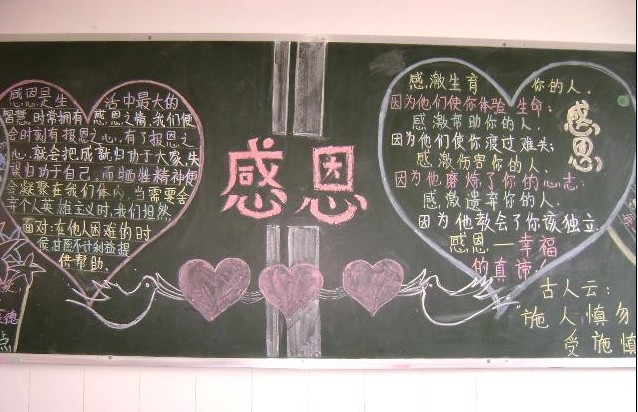 感恩是生活中最大的
智慧,时常拥有感恩之情,我们便
会时刻有报恩之心,有了报恩之
心,就会把成就归功于大家,失
误归功于自己,而牺牲精神便
会凝聚在我们体内,当需要舍
弃个人英雄主义时,我们坦然
面对:在他人困难的时
候甘愿不计利益提
供帮助.
感恩
感激生育你的人,
因为他们使你体验生命;
感激帮助你的人.
因为他们使你渡过难关;
感激伤害你的人.
因为他磨炼了你的心志;
感激遗弃你的人.
因为他教会了你该独立.
感恩—幸福
的真谛.
感恩
古人云:
施人慎勿
受施慎
德
点